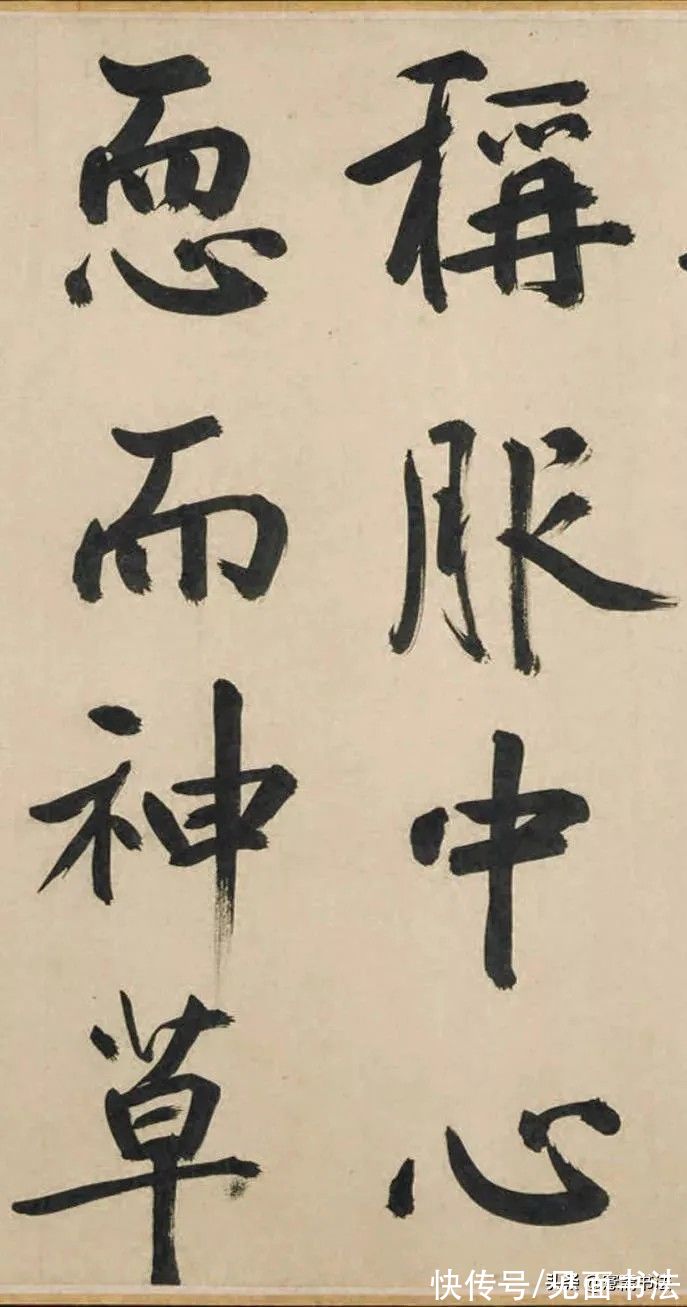 稱服中心
恧而神草
快传号/见面书法